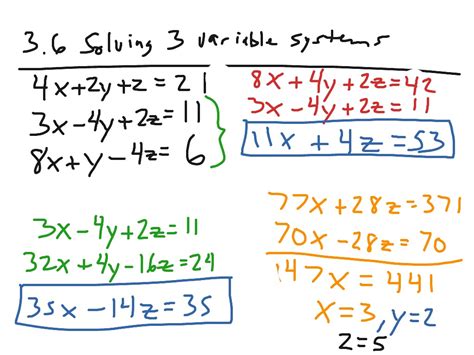 3.6 Solving 3 variable systems
4x+2y+z=21
3x-4y+2z=11
8x+y-4z=6
8x+4y+2z=42
3x-4y+2z=11
11x+4z=53
3x-4y+2z=11
32x+4y-16z=24
35x-14z=35
77x+28z=371
70x-28z=70
147x=441
x=3, y=2
z=5